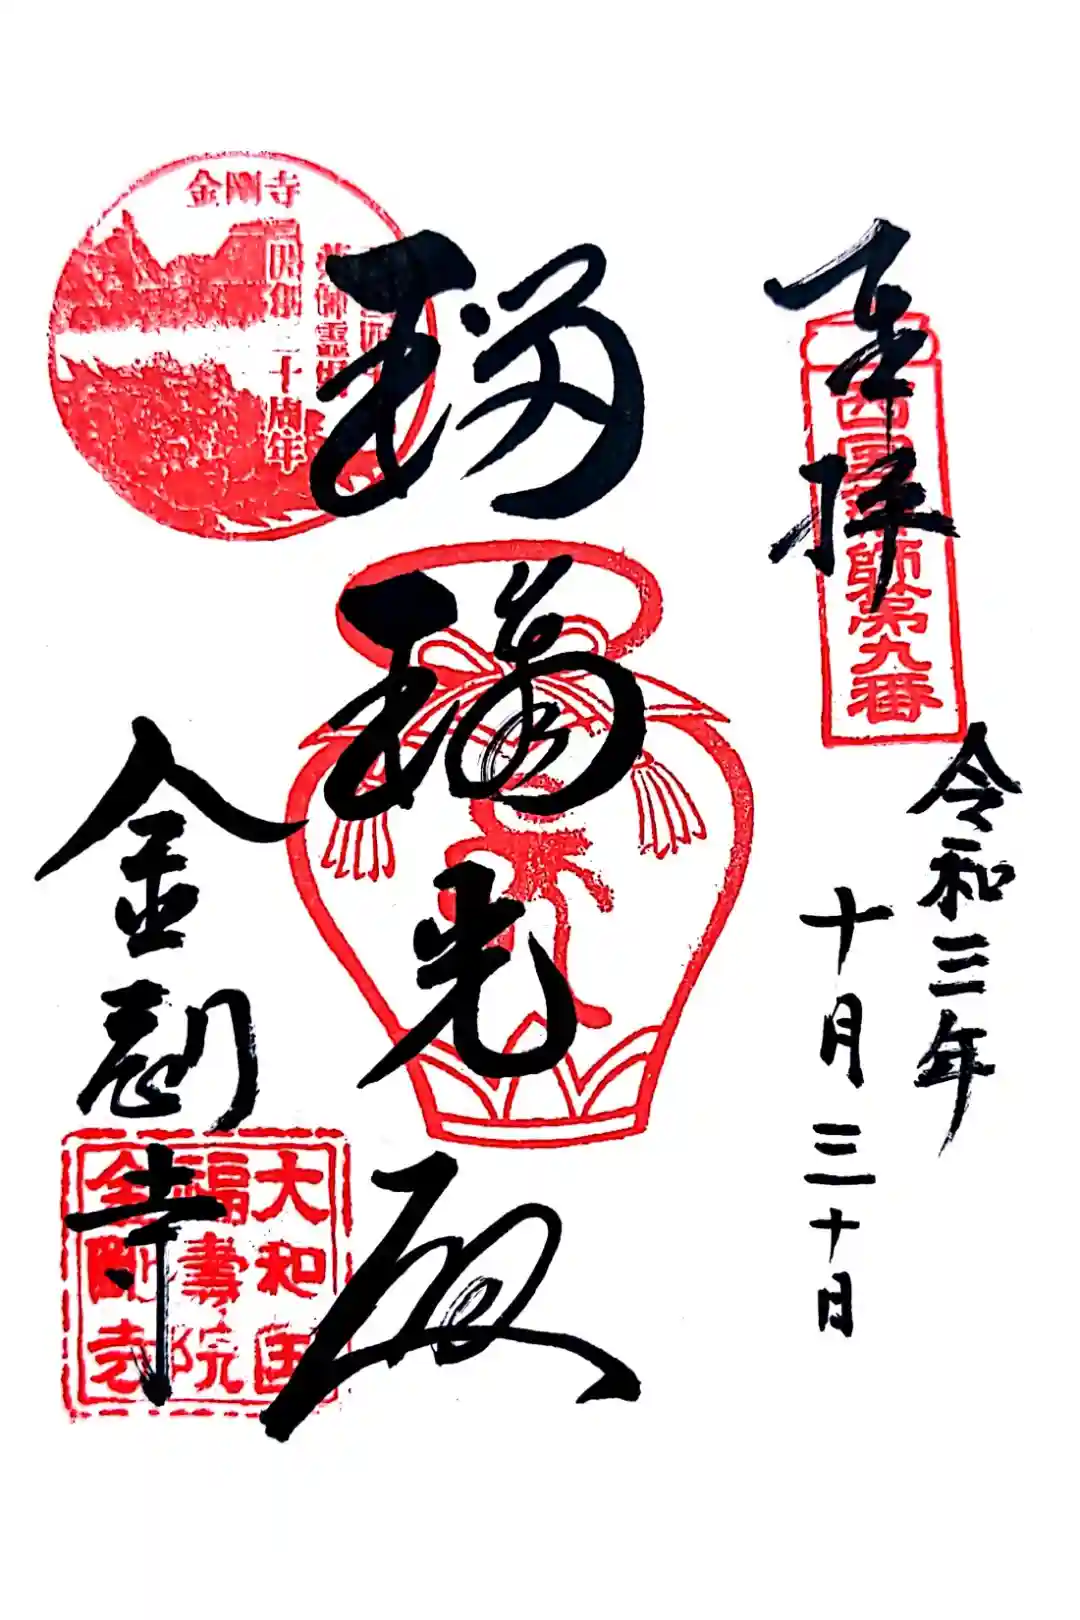 奉拝
西国薬師第九番
令和三年
十月三十日
瑠璃光殿
金剛寺
開創三十周年
金剛寺
大和国
福寿院
金剛寺